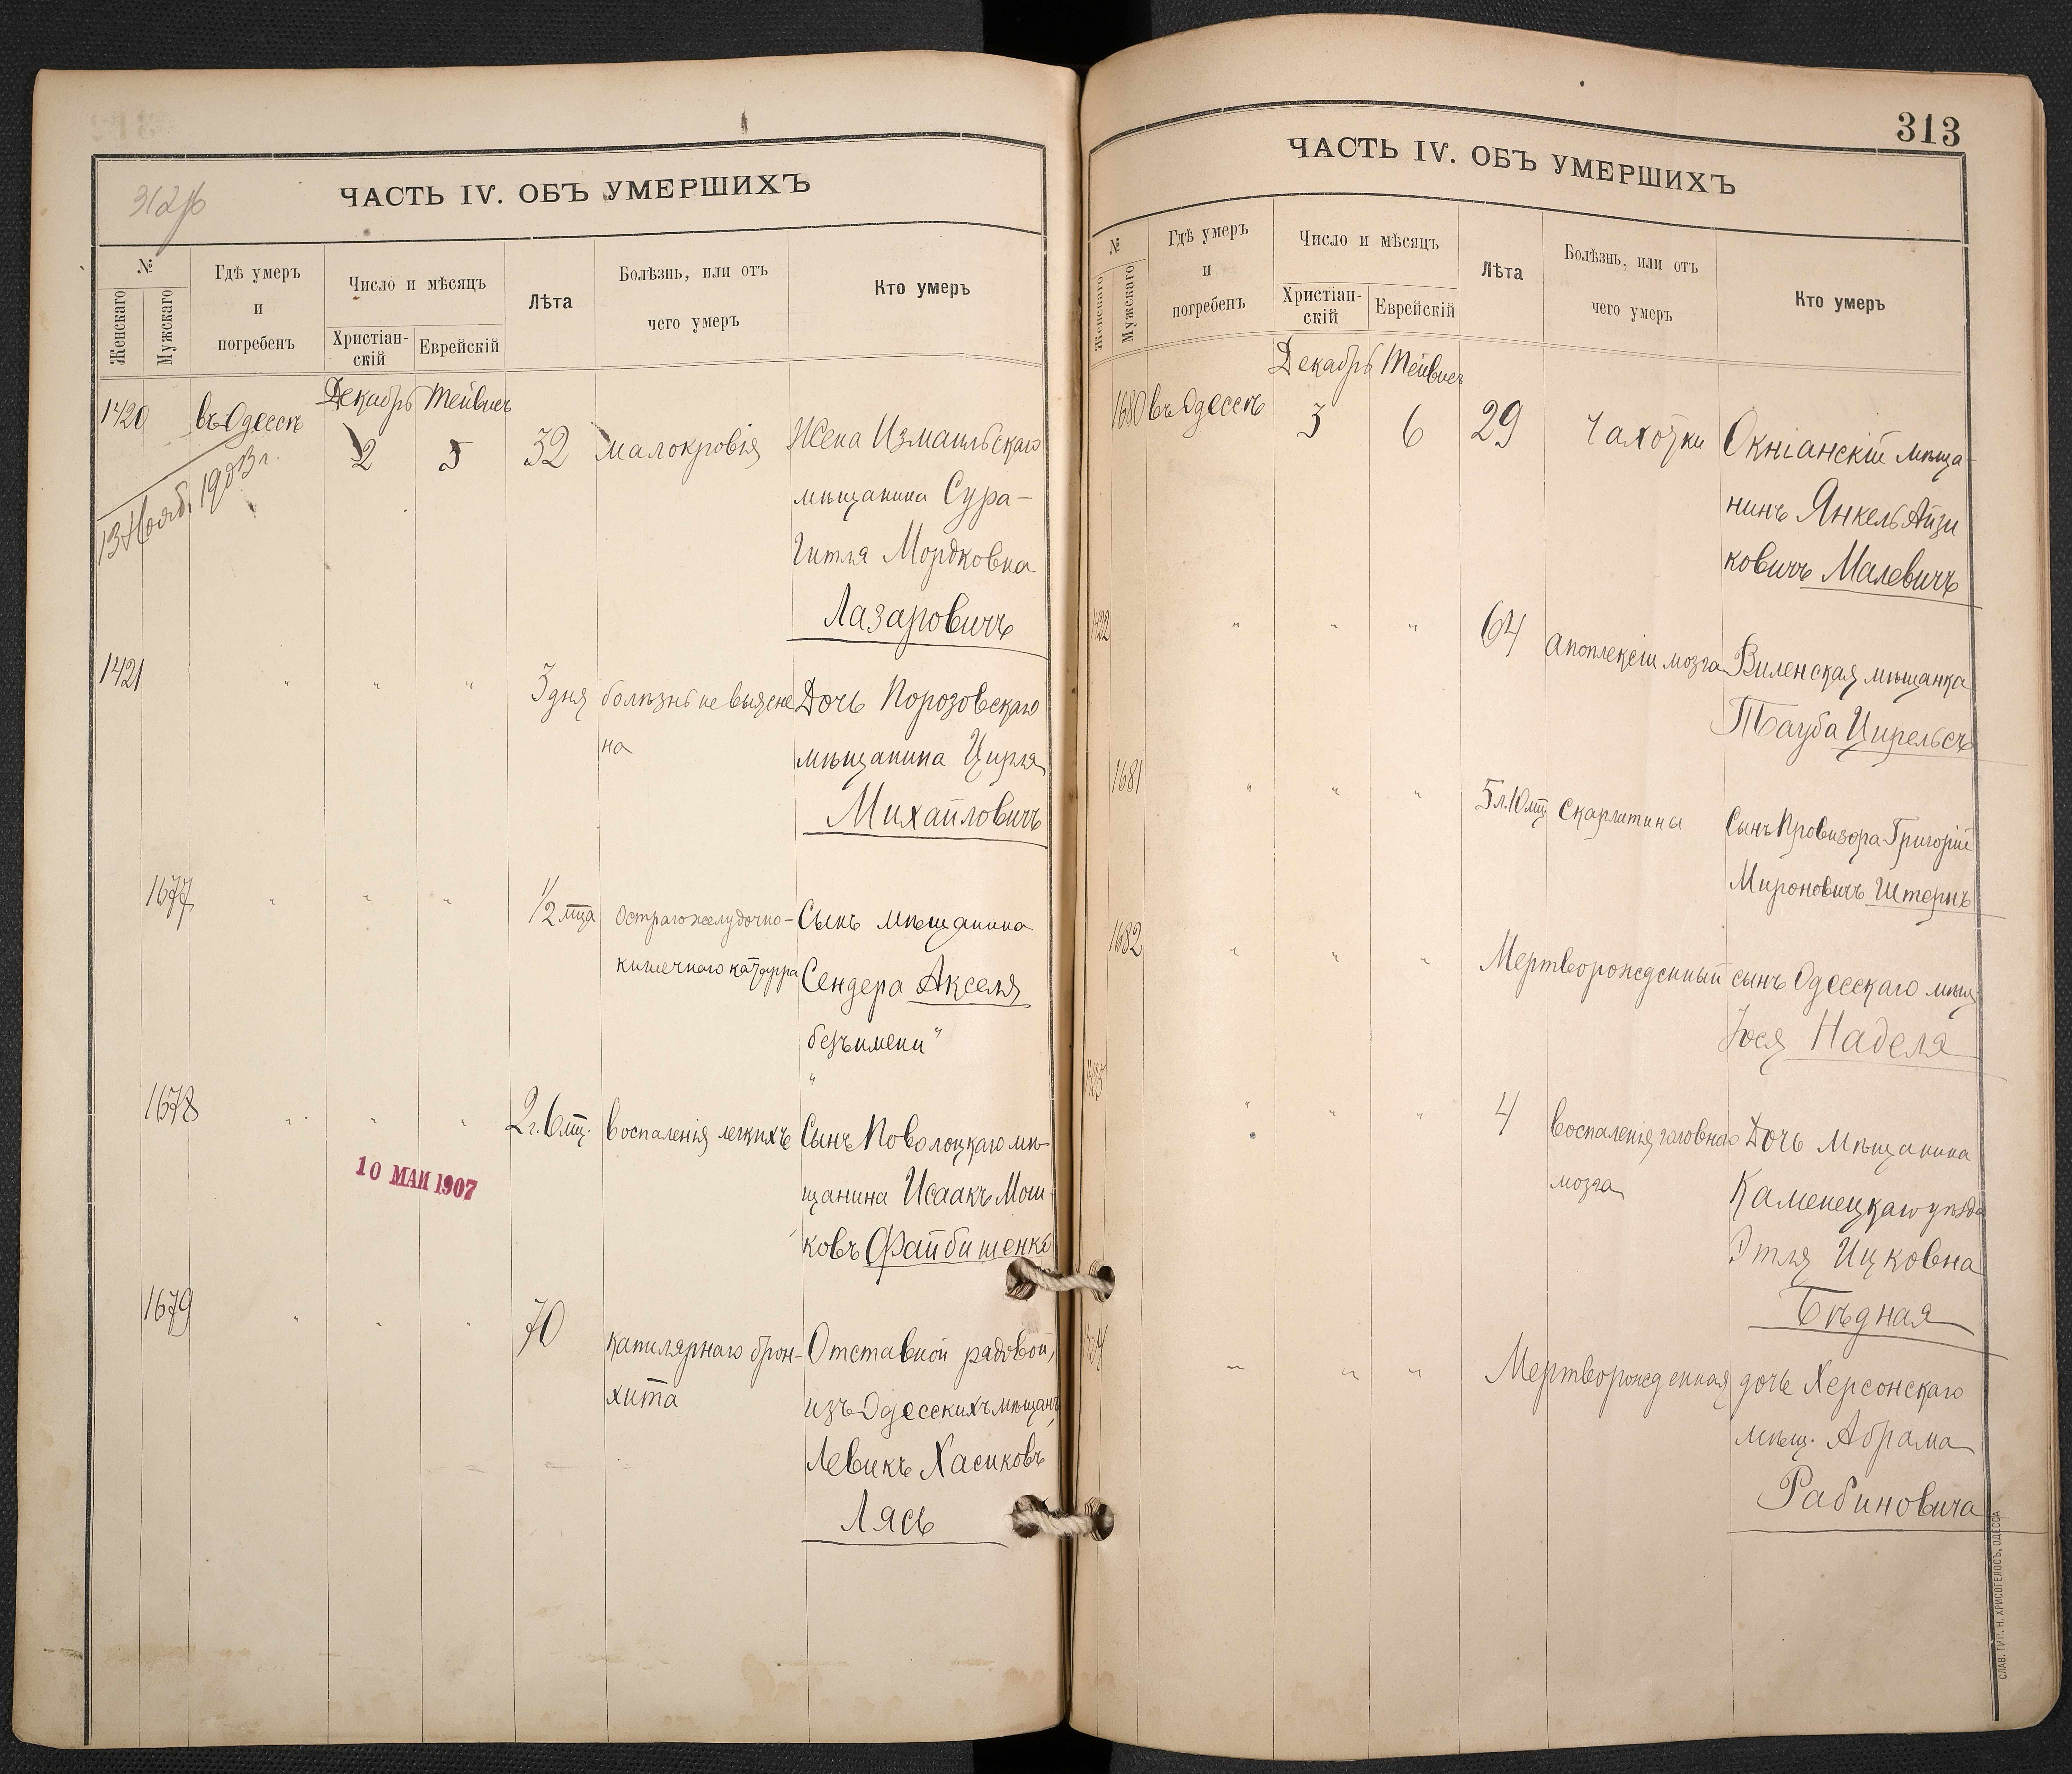 312 об
ЧАСТЬ IV. ОБЪ УМЕРШИХЪ
№
Женскаго
Мужскаго
Гдѣ умеръ
и
погребенъ
Число и мѣсяцъ
Христіан-
скій
Еврейскій
Лѣта
Болѣзнь, или отъ
чего умеръ
Кто умеръ
Декабрь Тейвисъ
1420 въ Одессѣ 2 5 32 малокровія Жена Измаильскаго
мѣщанина Сура-
Гитля Мордковна
Лазаровичъ
13 Нояб. 1903 г.
1421 " " " 3 дня болѣзнь не выясне Дочь Порозовскаго
на
мѣщанина Цирля
Михайловичъ
1677 " " " 1/2 мца Остраго желудочно- Сынъ мѣщанина
кишечнаго катарра Сендера Акселя
безъ имени"
"
1678 " " " 2 г. 6 мц. воспаленія легкихъ Сынъ Поволоцкаго мѣ-
щанина Исаакъ Мош-
ковъ Файбишенко
10 МАИ 1907
1679 " " " 70 капилярнаго брон- Отставной рядовой,
хита
изъ Одесскихъ мѣщанъ,
Левикъ Хасиковъ
Лясъ
313
ЧАСТЬ IV. ОБЪ УМЕРШИХЪ
№
Женскаго
Мужскаго
Гдѣ умеръ
и
погребенъ
Число и мѣсяцъ
Христіан-
скій
Еврейскій
Лѣта
Болѣзнь, или отъ
чего умеръ
Кто умеръ
Декабрь Тейвисъ
1680 въ Одессѣ 3 6 29 Чахотки Окніанскій мѣща-
нинъ Янкель Айзи
ковичъ Малевичъ
1422 " " " 64 апоплексіи мозга Виленская мѣщанка
Тауба Цирельсъ
1681 " " " 5 л. 10 мц. Скарлатины Сынъ Провизора Григорій
Мироновичъ Штернъ
1682 " " " Мертворожденный сынъ Одесскаго мѣщ.
Іося Наделя
1423 " " " 4 воспаленія головного Дочь Мѣщанина
мозга
Каменецкаго уѣзда
Этля Ицковна
Бѣдная
1424 " " " Мертворожденная дочь Херсонскаго
мѣщ. Абрама
Рабиновича
СЛАВ. ТИП. Н. ХРИСОГЕЛОСЪ, ОДЕССА